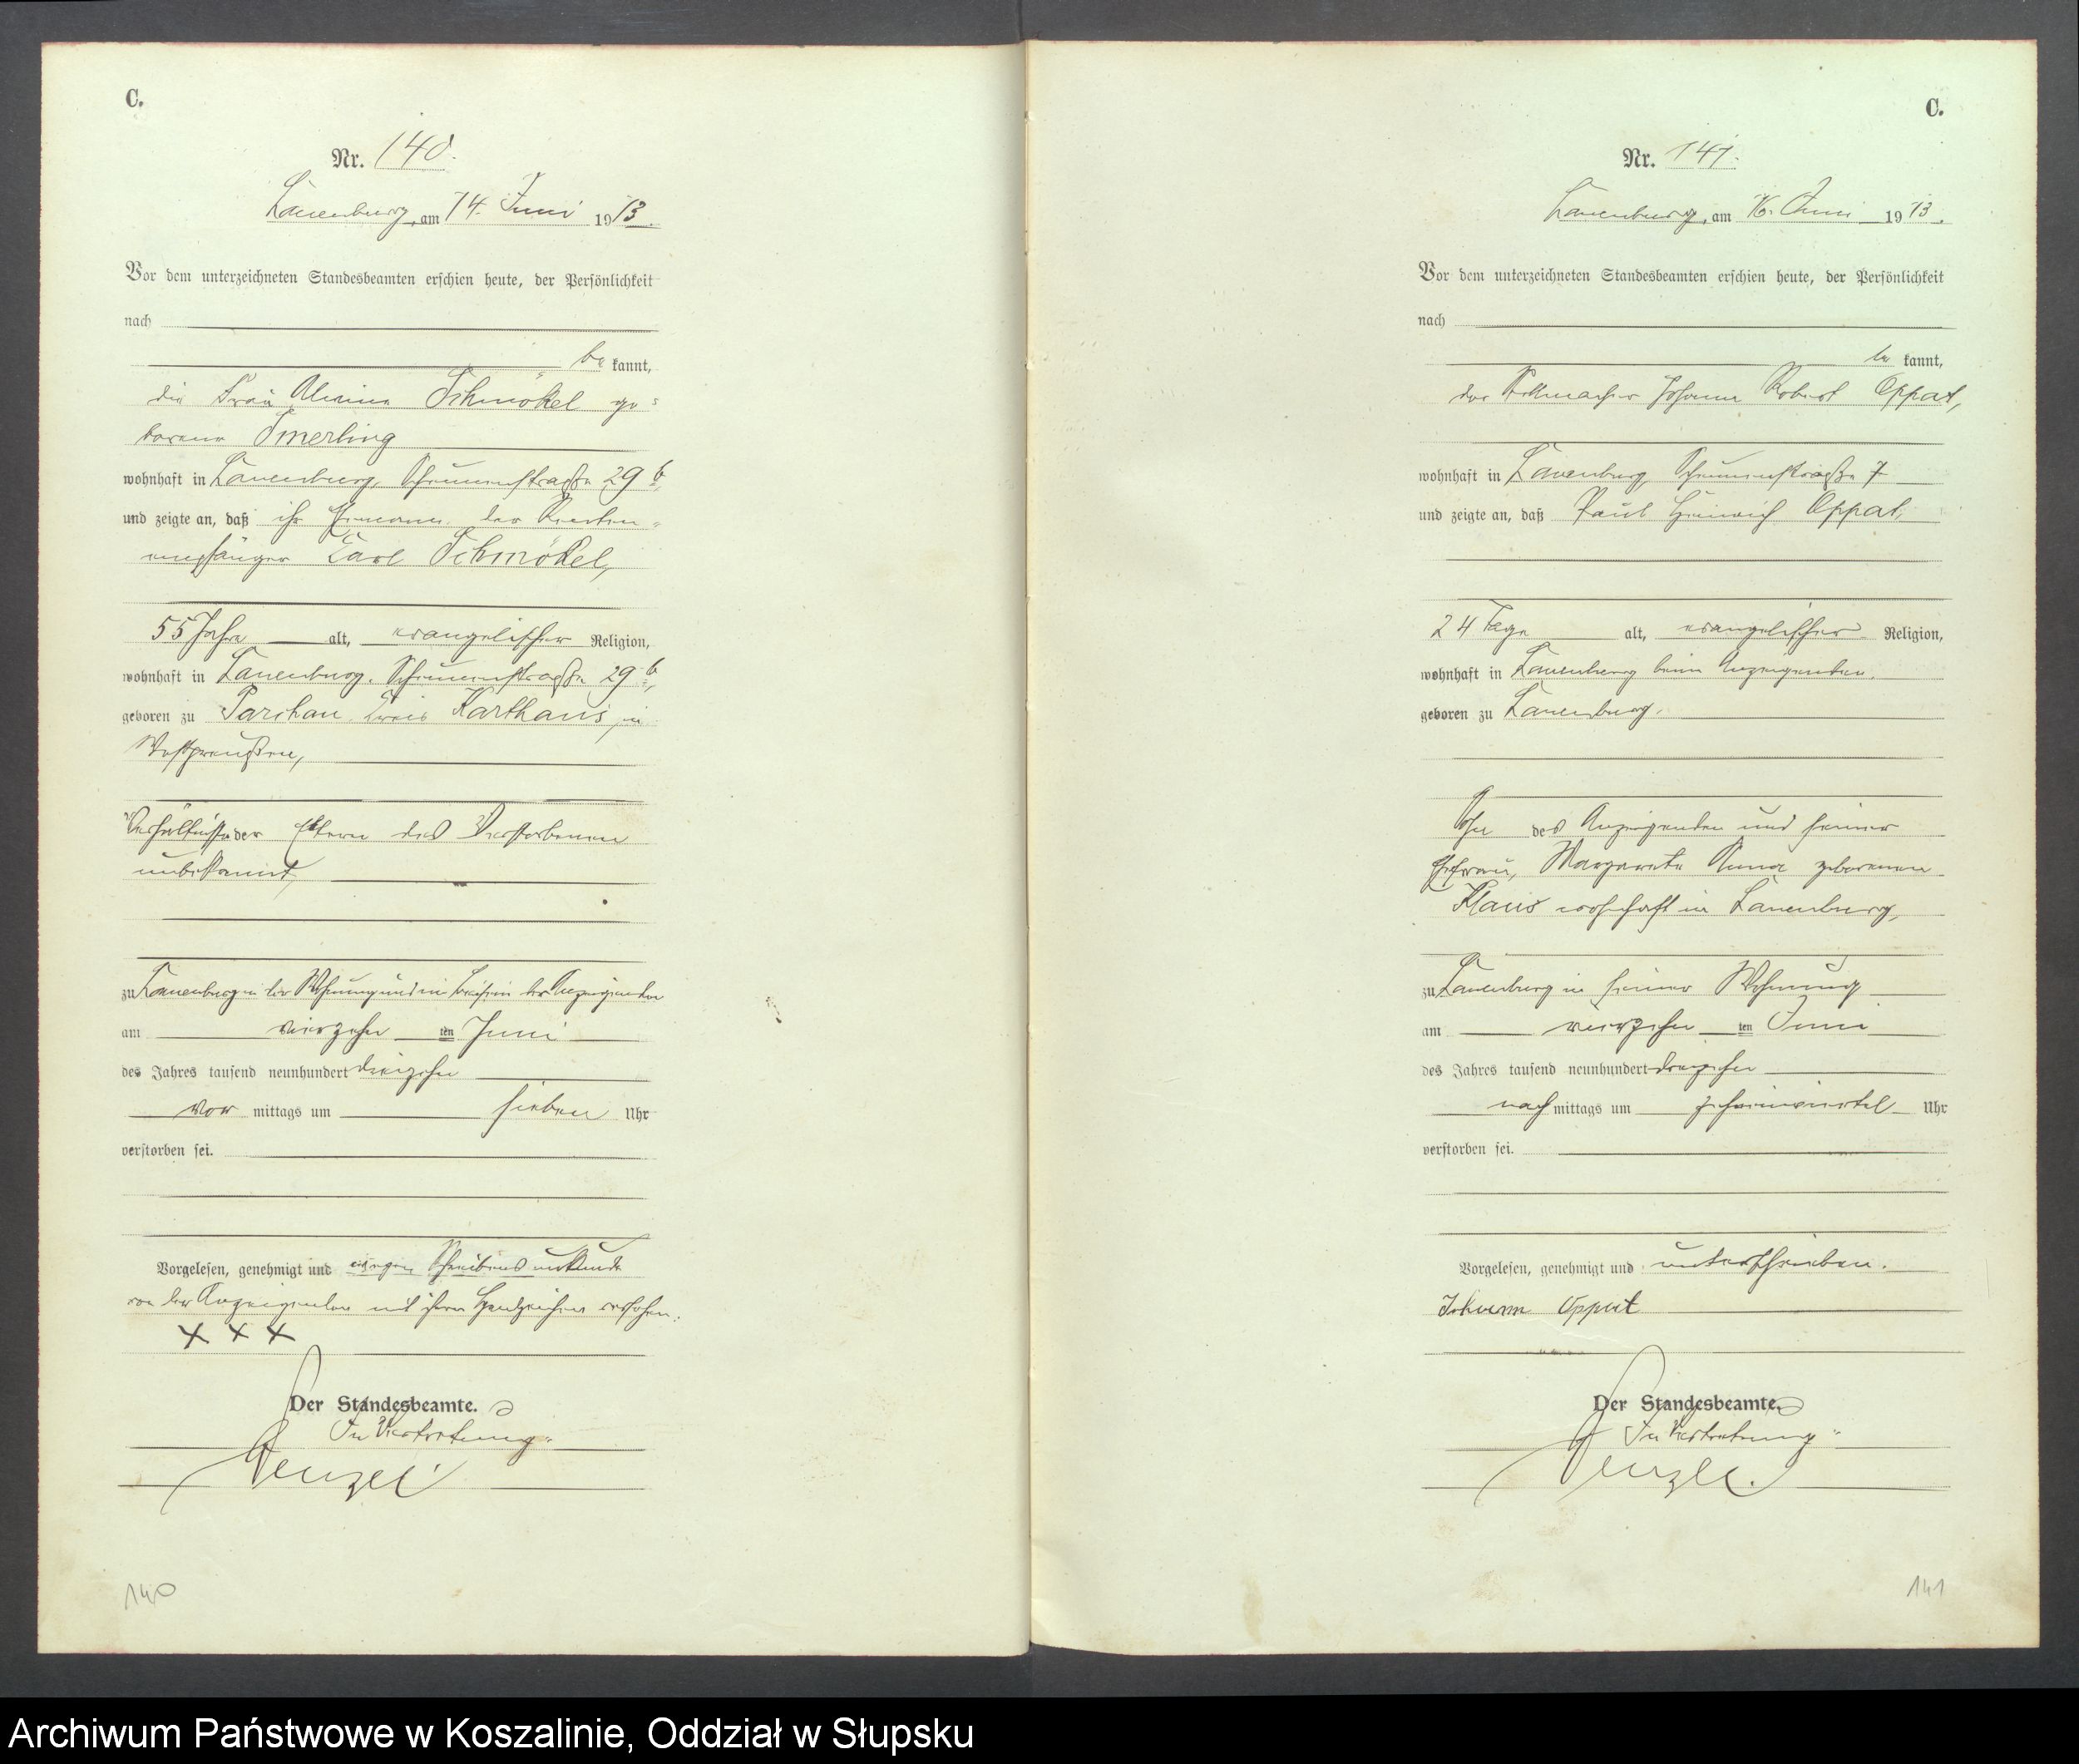 C.
Nr. 140.
Lauenburg, am 14. Juni 1913.
Vor dem unterzeichneten Standesbeamten erschien heute, der Persönlichkeit
nach
be kannt,
die Frau Schmökel ge=
borene Smerling
wohnhaft in Lauenburg, Scheunenstraße 29 b,
und zeigte an, daß ihr Ehemann, der Renten=
empfänger Carl Schmökel,
55 Jahre alt, evangelischer Religion,
wohnhaft in Lauenburg, Scheunenstraße 29 b,
geboren zu Parchau, Kreis Karthaus, in
Westpreußen,
Verhältnisse der Eltern des Verstorbenen
unbekannt,
zu Lauenburg in der Wohnung und in Beisein der Anzeigenden
am vierzehn ten Juni
des Jahres tausend neunhundert dreizehn
vor mittags um sieben Uhr
verstorben sei.
Vorgelesen, genehmigt und wegen Schreibensunkunde
von der Anzeigenden mit ihrem Handzeichen versehen.
+ + +
Der Standesbeamte.
In Vertretung.
140
C.
Nr. 141.
Lauenburg, am 16. Juni 1913.
Vor dem unterzeichneten Standesbeamten erschien heute, der Persönlichkeit
nach
be kannt,
der Stellmacher Johann Robert Oppat,
wohnhaft in Lauenburg, Scheunenstraße 7
und zeigte an, daß Paul Heinrich Oppat,
24 Tage alt, evangelischer Religion,
wohnhaft in Lauenburg beim Anzeigenden,
geboren zu Lauenburg,
Sohn des Anzeigenden und seiner
Ehefrau, Margarete Anna geborenen
Klaus wohnhaft in Lauenburg,
zu Lauenburg in seiner Wohnung
am vierzehn ten Juni
des Jahres tausend neunhundert dreizehn
nach mittags um zehneinviertel Uhr
verstorben sei.
Vorgelesen, genehmigt und unterschrieben.
Johann Oppat
Der Standesbeamte.
In Vertretung.
141
Archiwum Państwowe w Koszalinie, Oddział w Słupsku